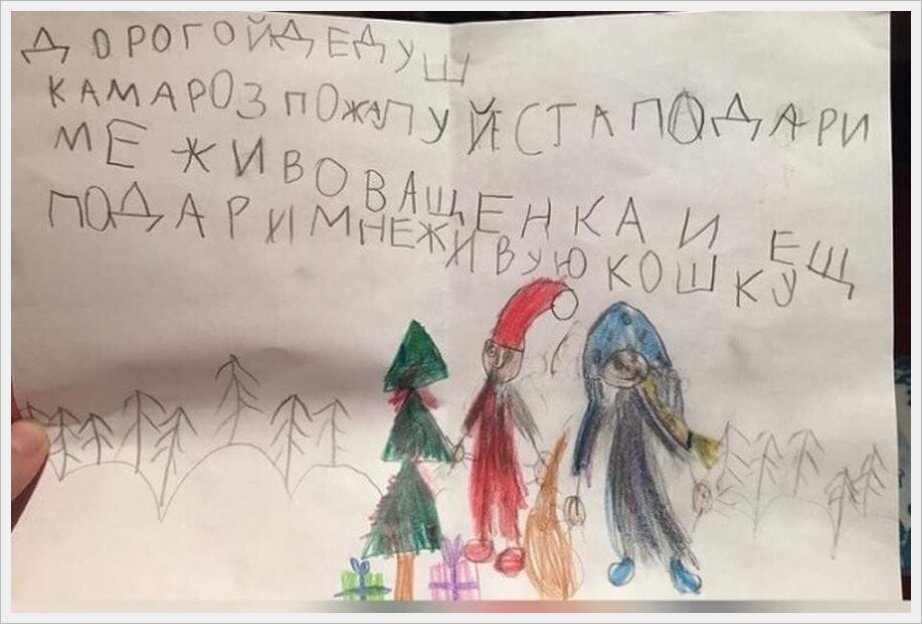 ДОРОГОЙДЕДУШ
КАМАРОЗ ПОЖАЛУЙСТАПОДАРИ
МЕ ЖИВОВАЩЕНКА И ЕЩ
ПОДАРИМНЕЖИВУЮКОШКУ